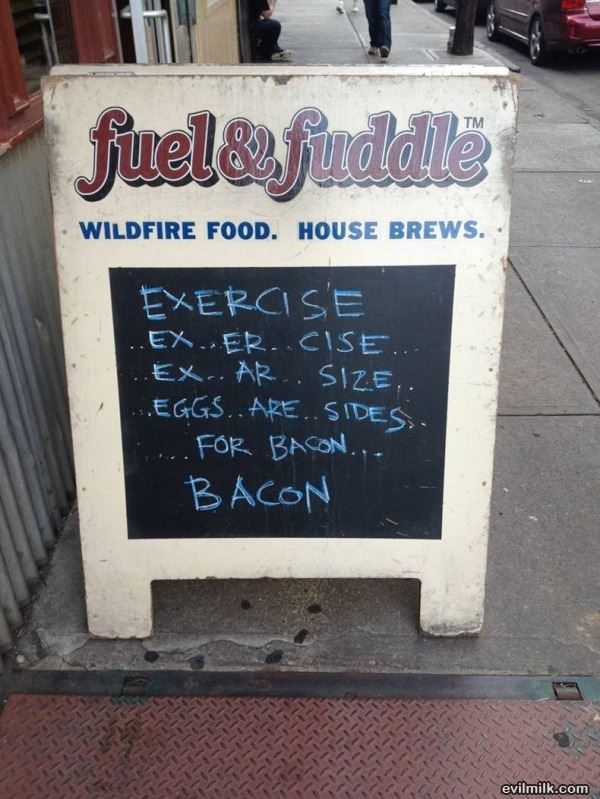 fuel & fuddle™
WILDFIRE FOOD. HOUSE BREWS.
EXERCISE
..EX...ER...CISE...
..EX...AR...SIZE..
..EGGS...ARE...SIDES..
....FOR BACON...
BACON
evilmilk.com